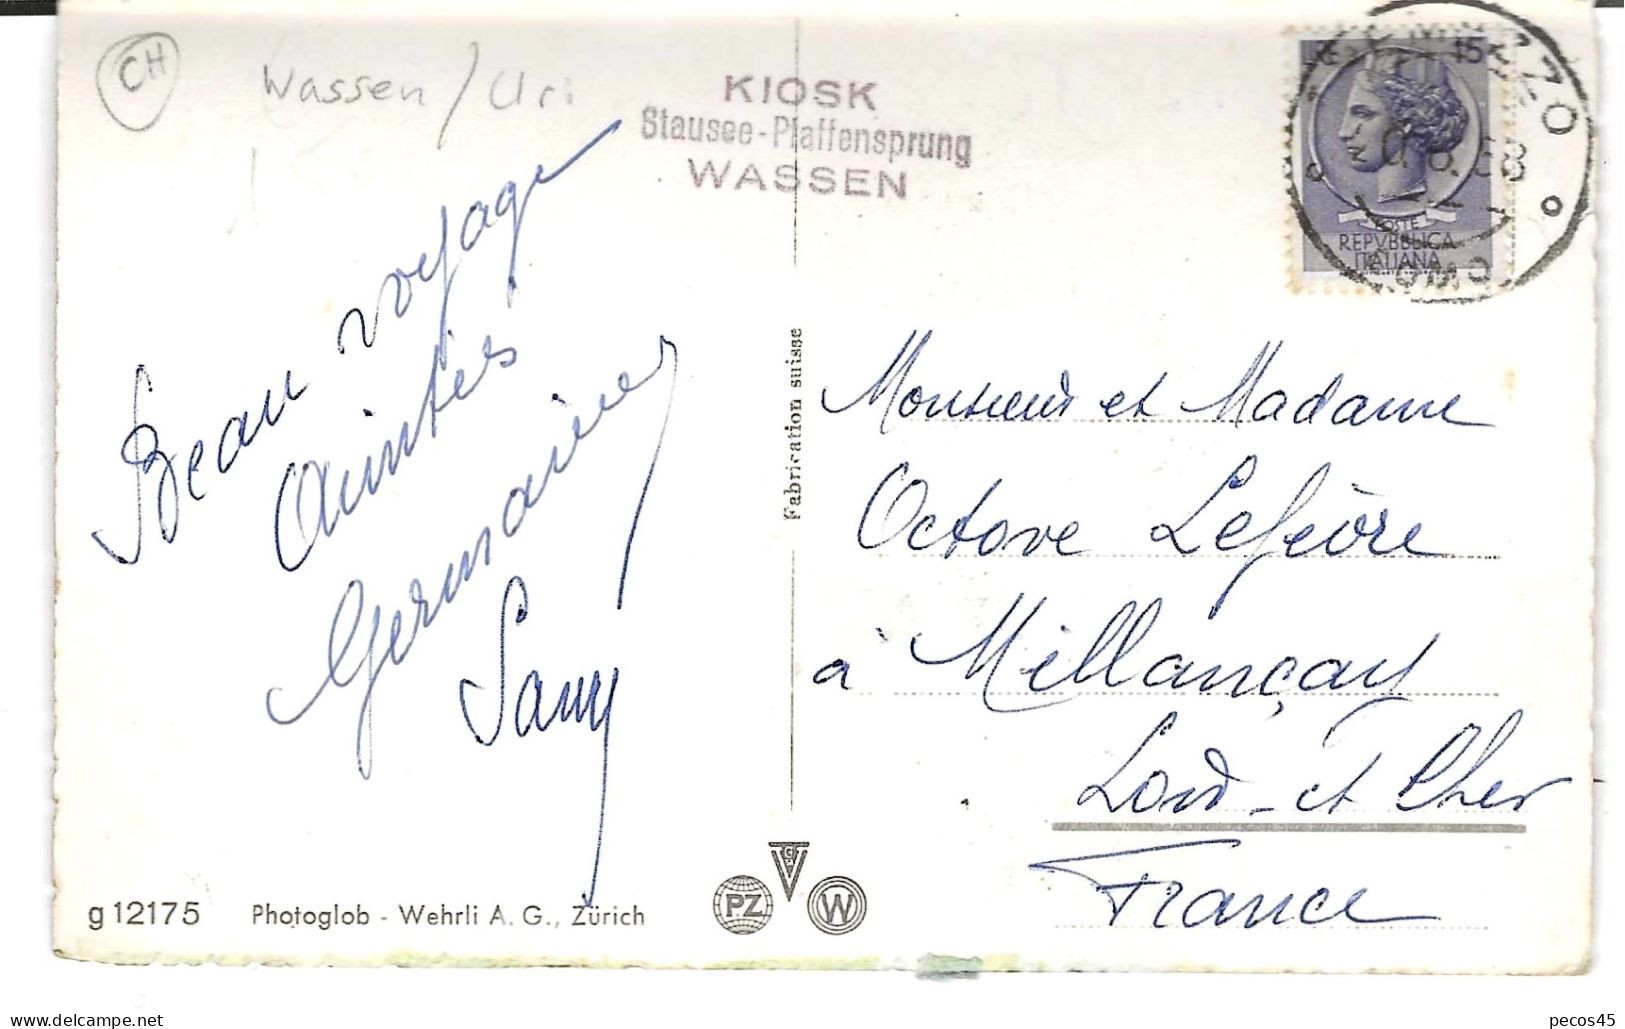 CH
Wassen / Uri
KIOSK
Stausee-Pfaffensprung
WASSEN
LIRE 15
POSTE
REPVBBLICA
ITALIANA
58
Beau voyage
Amitiés
Germaine
Samy
Fabrication suisse
Monsieur et Madame
Octave Lefèvre
à Millançay
Loir-et Cher
France
g 12175
Photoglob - Wehrli A. G., Zürich
PZ
G
V
W
pecos45